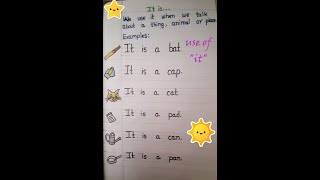 It is...
We use it when we talk
about a thing, animal or place
Examples:
It is a bat
use of
"it"
It is a cap.
It is a cat
It is a pad.
It is a can.
It is a pan.